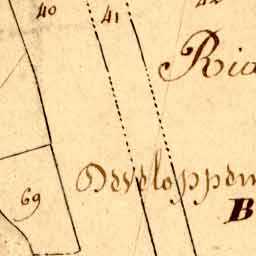 40
41
42
Ria
Developpem
69
B